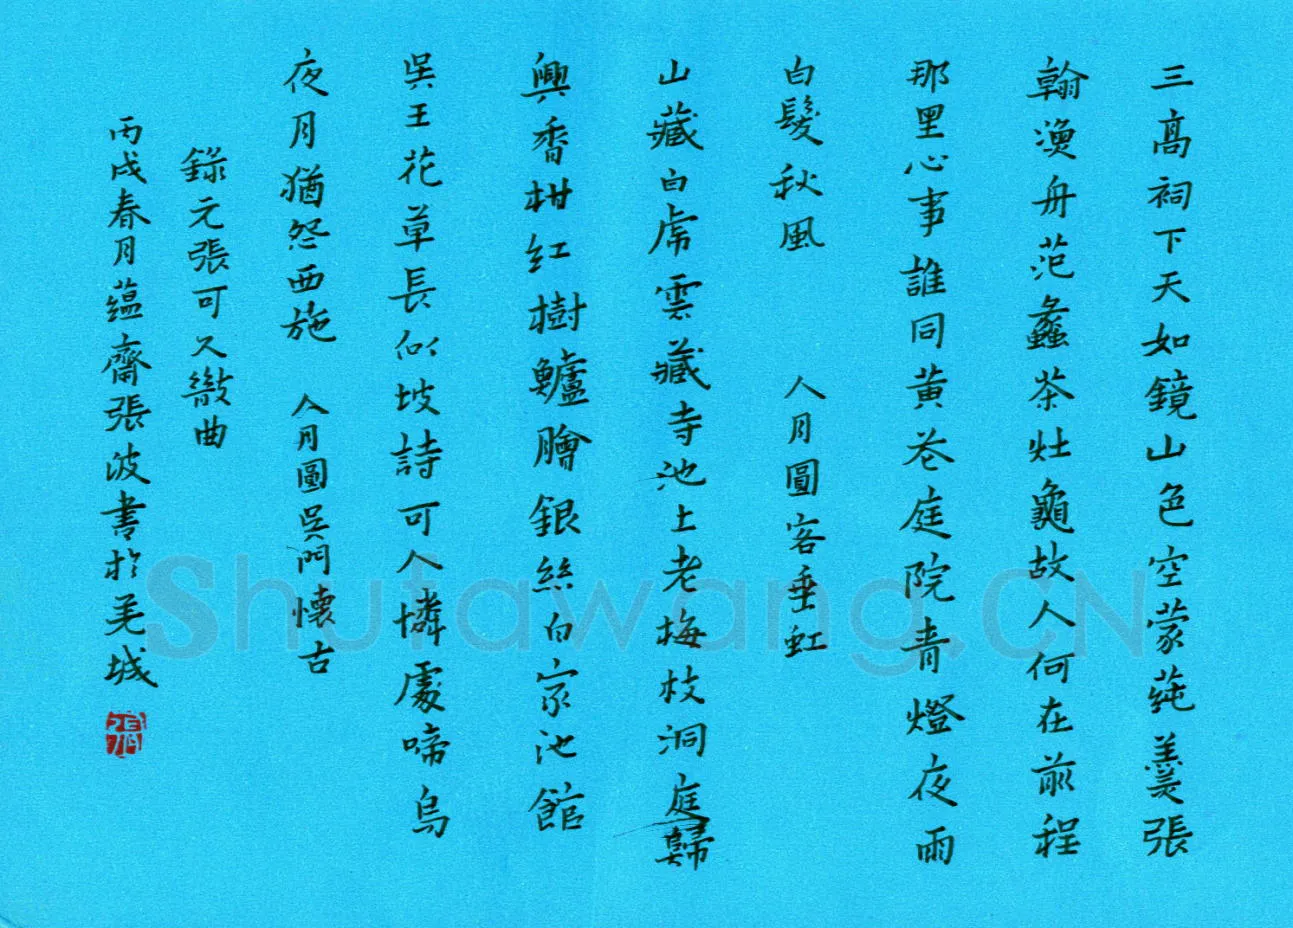 三高祠下天如鏡山色空蒙蒓羹張
翰漁舟范蠡茶灶龜故人何在前程
那里心事誰同黄花庭院青燈夜雨
白髮秋風 人月圓客垂虹
山藏白虎雲藏寺池上老梅枝洞庭歸
興香柑紅樹鱸膾銀絲白家池館
吳王花草長似坡詩可人憐處啼烏
夜月猶怨西施 人月圓吳門懷古
錄元張可久散曲
丙戌春月蕴齋張波書於羌城
張
Shutawang.CN